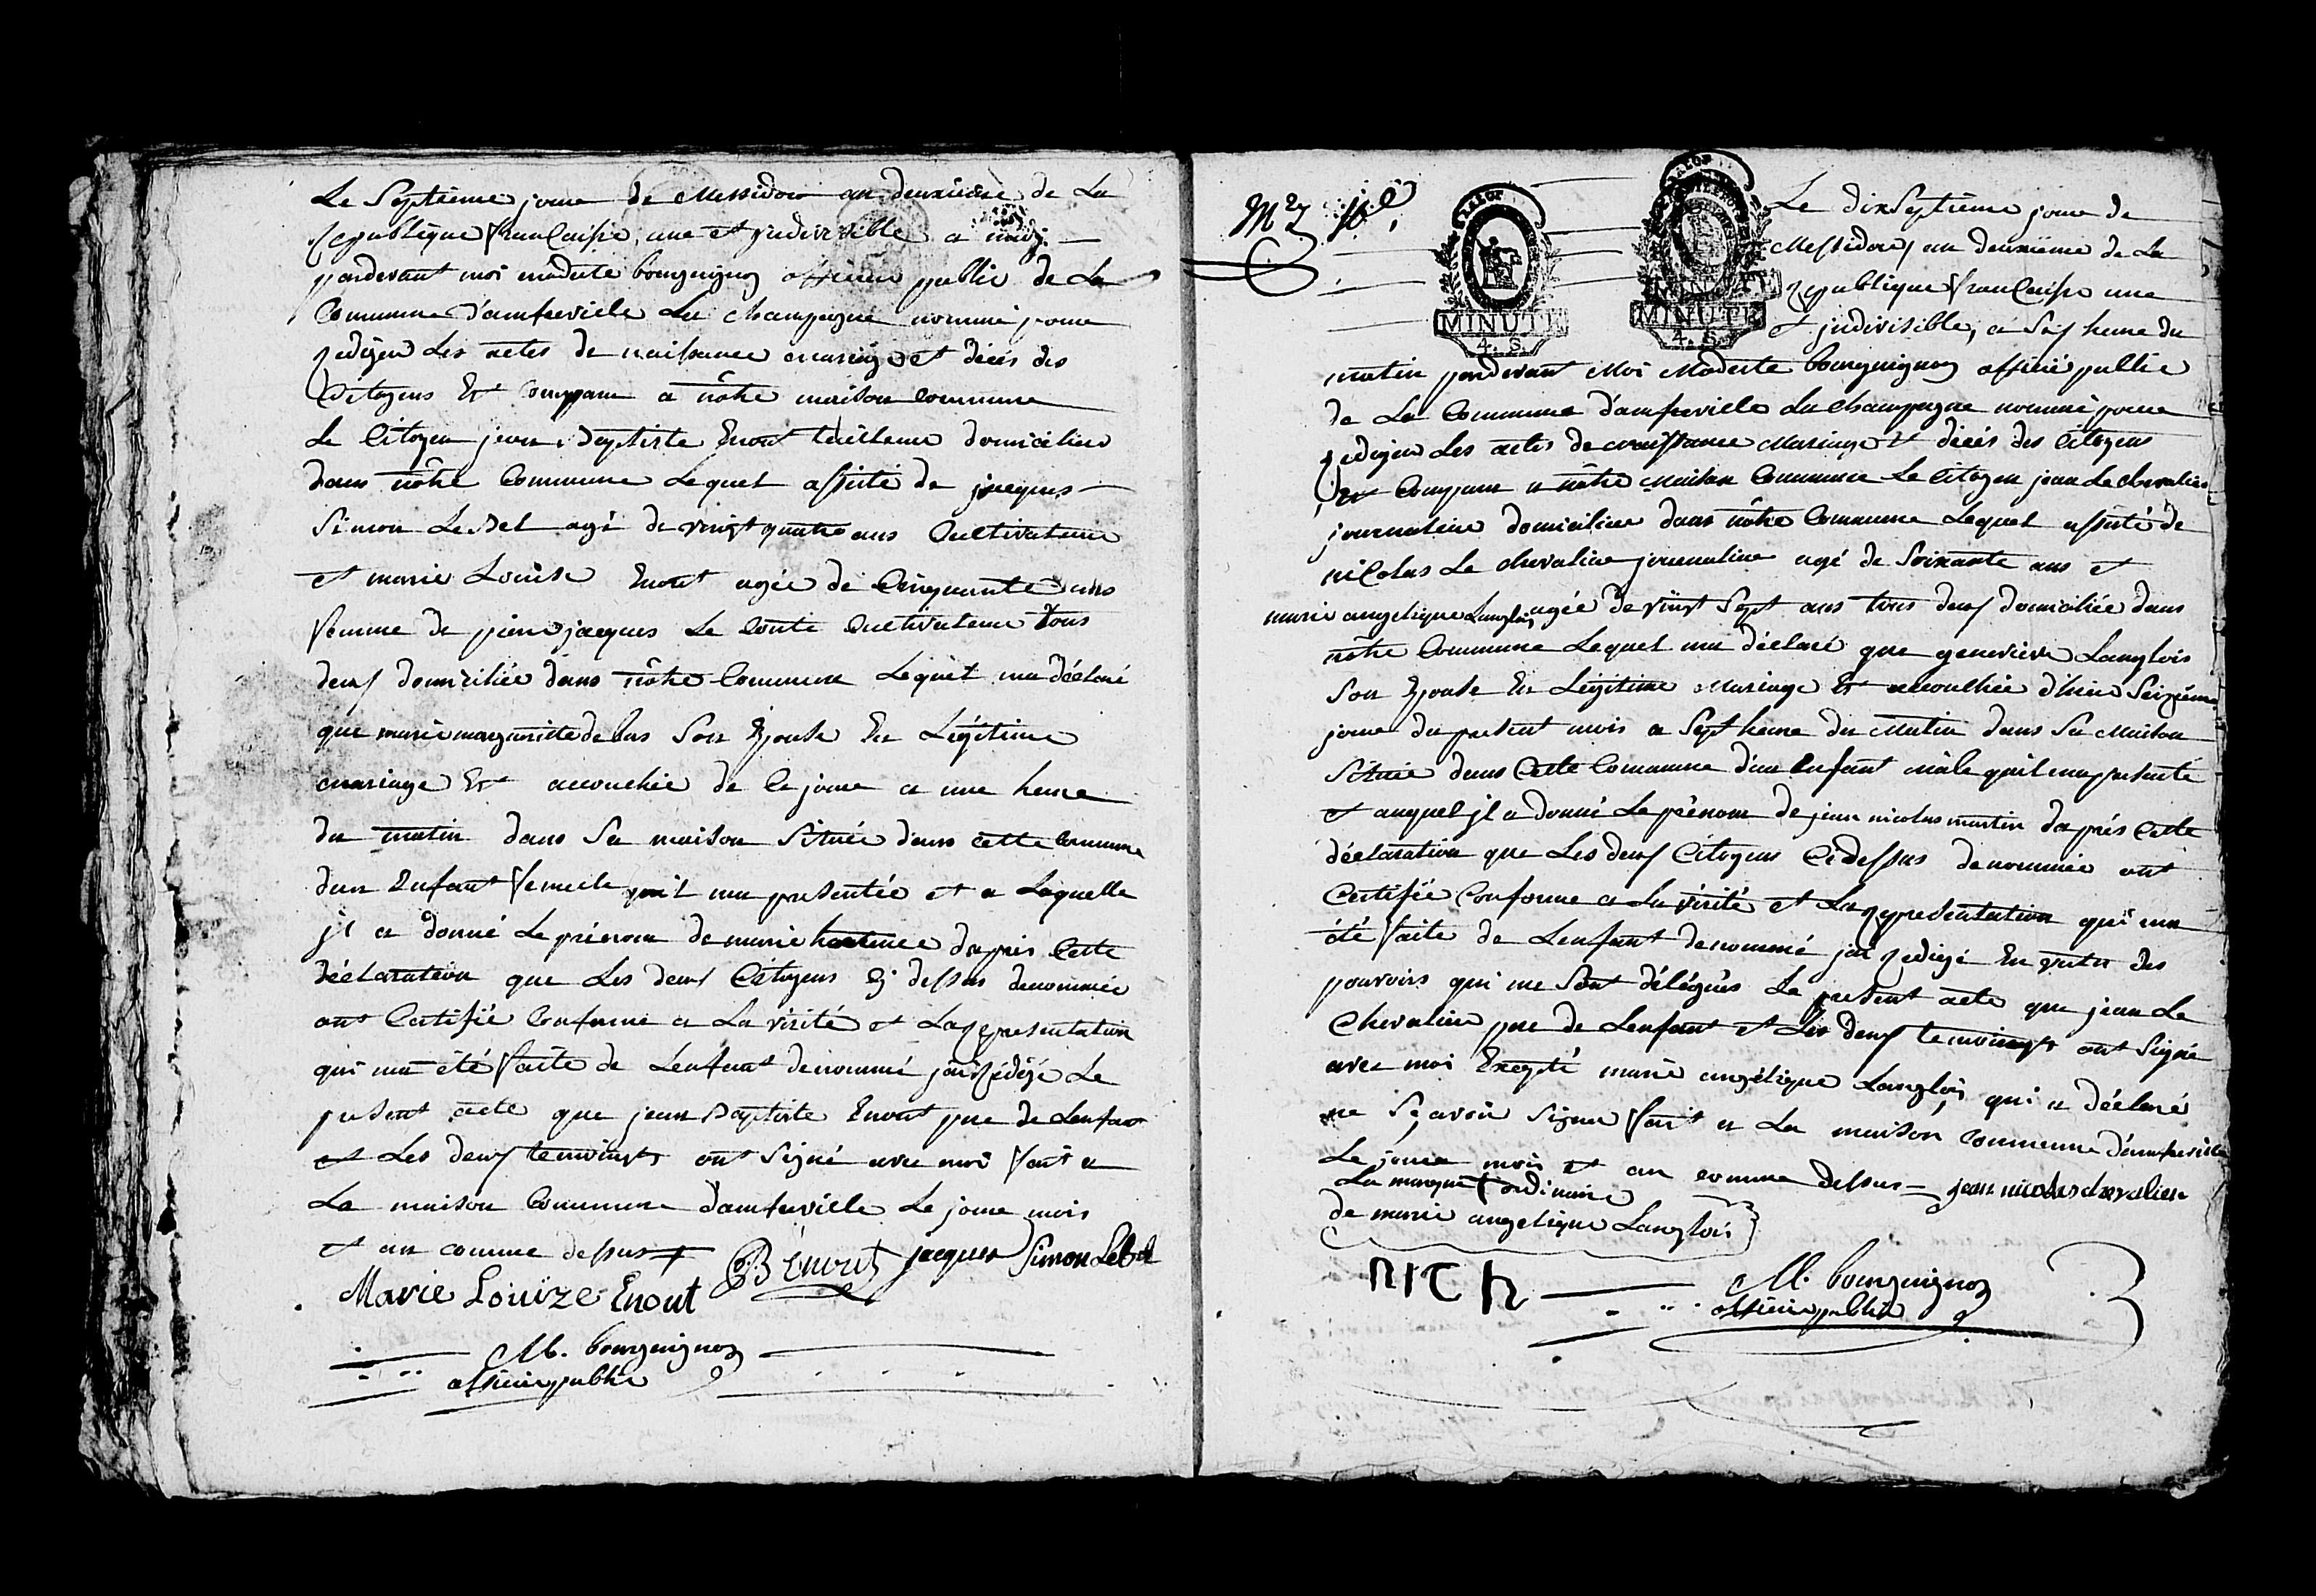 Le Septième jour de Messidor an deuxième de La
republique francaise, une et yndivisible a midy
pardevant moi modeste bourguignon officier public de La
Commune d'amfreville La champagne nommé pour
redigér Les actes de naissance mariage et décés des
Citoyens Est Comparu a nôtre maison commune
Le Citoyen jean Baptiste Enout tailleur domicilier
dans nôtre Commune Lequel assisté de jacques
Simon LeBel agé de vingt quatre ans Cultivateur
et marie Louise Enout agée de Cinquante ans
femme de pierre jacques Le Conte Cultivateur tous
deux domiciliée dans nôtre Commune Lequel ma déclaré
que marie marguerite debus Son Epouse En Légitime
mariage Est accouchée de Ce jour a une heure
du matin dans Sa maison Située dans cette commune
dun Enfant femelle quil ma presentée et a Laquelle
jl a donné Le prénom de marie hortence daprés Cette
déclaration que Les deux Citoyens Cy dessus denommée
ont Certifié Conforme a La vérité et La representation
qui ma été faite de Lenfant denommé jai rédigé Le
present acte que jean Baptiste Enout pere de Lenfant
et Les deux temoingts ont Signé avec moi fait a
La maison Commune damfreville Le jour mois
et an comme dessus
B Enout jacques Simon Lebel
Marie Louïze Enout
M. bourguignon
officier public
Le dix Septième jour de
Messidor, an deuxième de La
republique francaise une
et jndivisible, a Six heure du
matin pardevant Moi Modeste bourguignon officié public
de La Commune d'amfreville La champagne nommé pour
redigér Les actes de naissance Mariage et décés des Citoyens
Est Comparu a nôtre Maison Commune Le Citoyen jean Le chevalier
journalier domicilier dans nôtre Commune Lequel assisté de
nicolas Le chevalier journalier agé de Soixante ans et
marie angelique Langlois agée de vingt Sept ans tous deux domiciliée dans
nôtre Commune Lequel ma déclaré que genevieve Langlois
Son Epouse En Légitime Mariage Est accouchée d'hier Seizieme
jour du present mois a Sept heure du Matin dans Sa Maison
Située dans Cette Commune d'un Enfant mâle quil ma presenté
et auquel jl a donné Le prénom de jean nicolas martin daprés Cette
déclaration que Les deux Citoyens Cidessus denommée ont
Certifié Conforme a La vérité et La representation qui ma
été faite de Lenfant denommé jai redigé En vertu des
pouvoirs qui me Sont délégués Le present acte que jean Le
Chevalier pere de Lenfant et Les deux temoingts ont Signé
avec moi Excepté marie angélique Langlois qui a déclaré
ne Sçavoir Signer fait a La maison commune d'amfreville
Le jour mois et an comme dessus jean nicolas chevalier
La marque ordinaire
de marie angelique Langlois
M. bourguignon
officier public
MINUTE
4. S.
MINUTE
MINUTE
4. S.